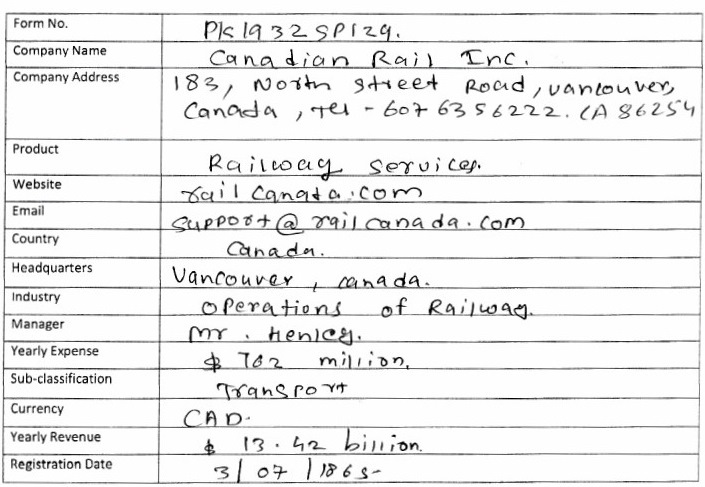 Form No. PK1932SP129.
Company Name Canadian Rail Inc.
Company Address 183, North street Road, vancouver,
Canada, Tel - 607 6356222. CA 86254
Product Railway services.
Website railcanada.com
Email support@railcanada.com
Country Canada.
Headquarters Vancouver, canada.
Industry operations of Railway.
Manager Mr. Henley.
Yearly Expense $ 762 million.
Sub-classification Transport
Currency CAD.
Yearly Revenue $ 13.42 billion.
Registration Date 3/07/1865